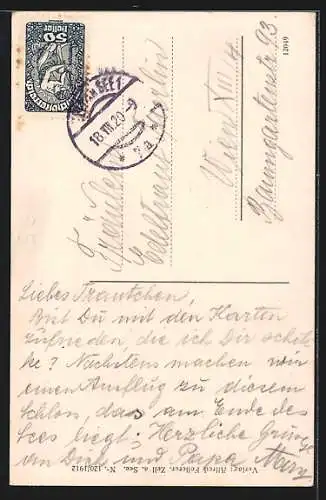 50
Heller
SEE 1
18.VII.20-9
* a *
12049
Fräulein
Edeltraut
Wien XIII/4
Baumgartenstr. 93.
Liebes Trautchen,
Bist Du mit den Karten
zufrieden, die ich Dir schik-
ke? Nächstens machen wir
einen Ausflug zu diesem
Schloss, das am Ende des
Sees liegt. Herzliche Grüsse
an Dich und Papa
Verlag: Alfred Feßerer, Zell a. See. Nr. 120/1912